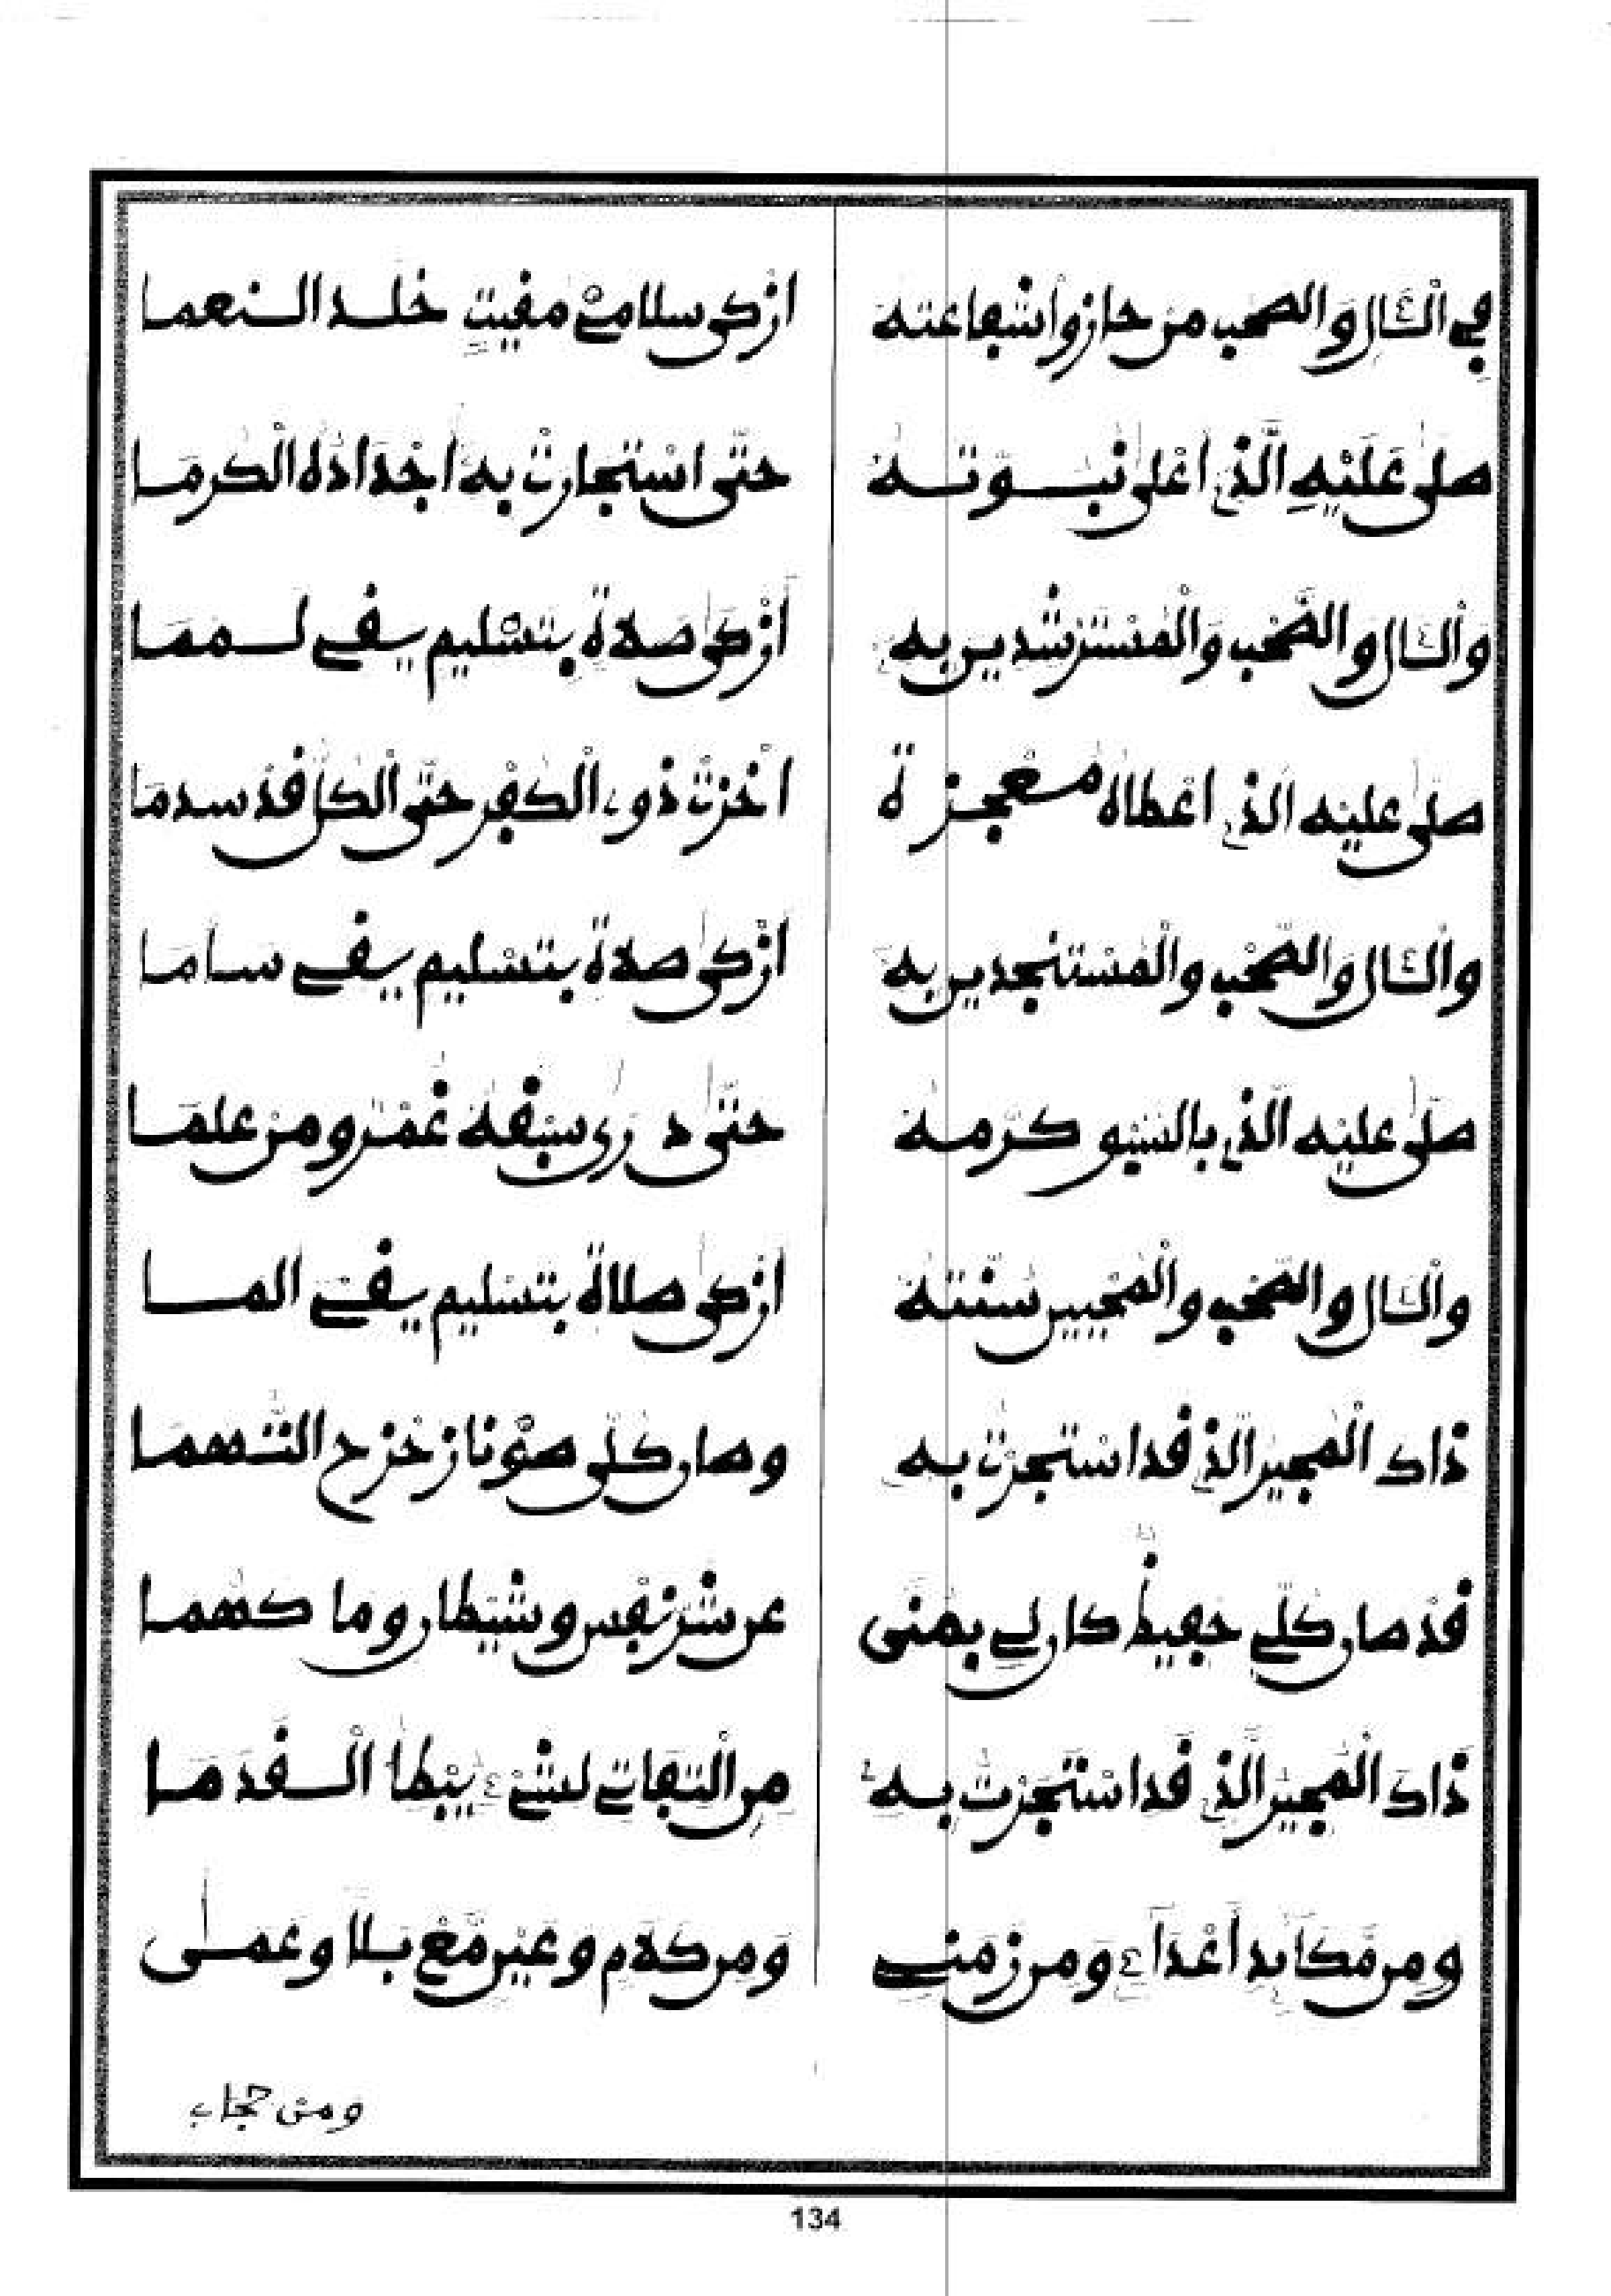 في الآل والصحب من حازوا شفاعته ازكى سلامي مقيت خلد النعما
صلى عليه الذي اعلى نبوته حتى استجارت به اجداده الكرما
والآل والصحب والمسترشدين به أزكى صلاة بتسليم يقي لمما
صلى عليه الذي اعطاه معجزة اخزت ذوي الكفر حتى الكل قد سدما
والآل والصحب والمستنجدين به ازكى صلاة بتسليم يقي ساما
صلى عليه الذي بالسيو كرمه حتى درى سبقه عمرو ومن علما
والآل والصحب والمحيين سنته ازكى صلاة بتسليم يقي الما
ذاك المجير الذي قد استجرت به وصان كلي صونا زحزح التهما
قد صان كلي حفيظ كان لي بمنى عن شر نفس وشيطان وما كهما
ذاك المجير الذي قد استجرت به من التفاتي لشيء يبطأ القدما
ومن مكآئد أعدآء ومن زمني ومن كلام وعير مع بلا وعمى
ومن حجاب
134